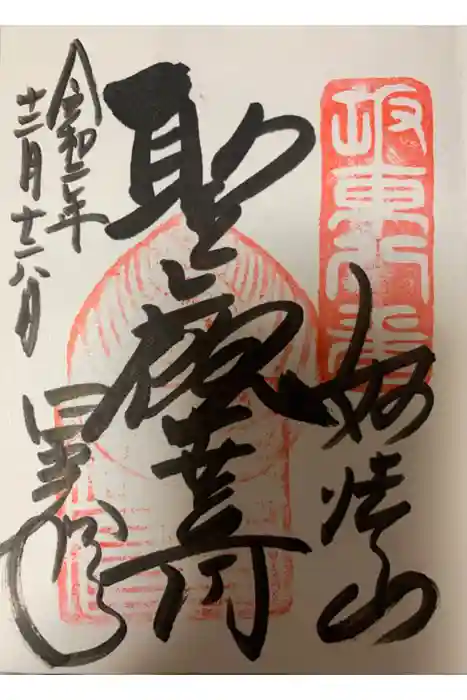 坂東八番
妙法山
聖観世音
令和二年
十二月十六日